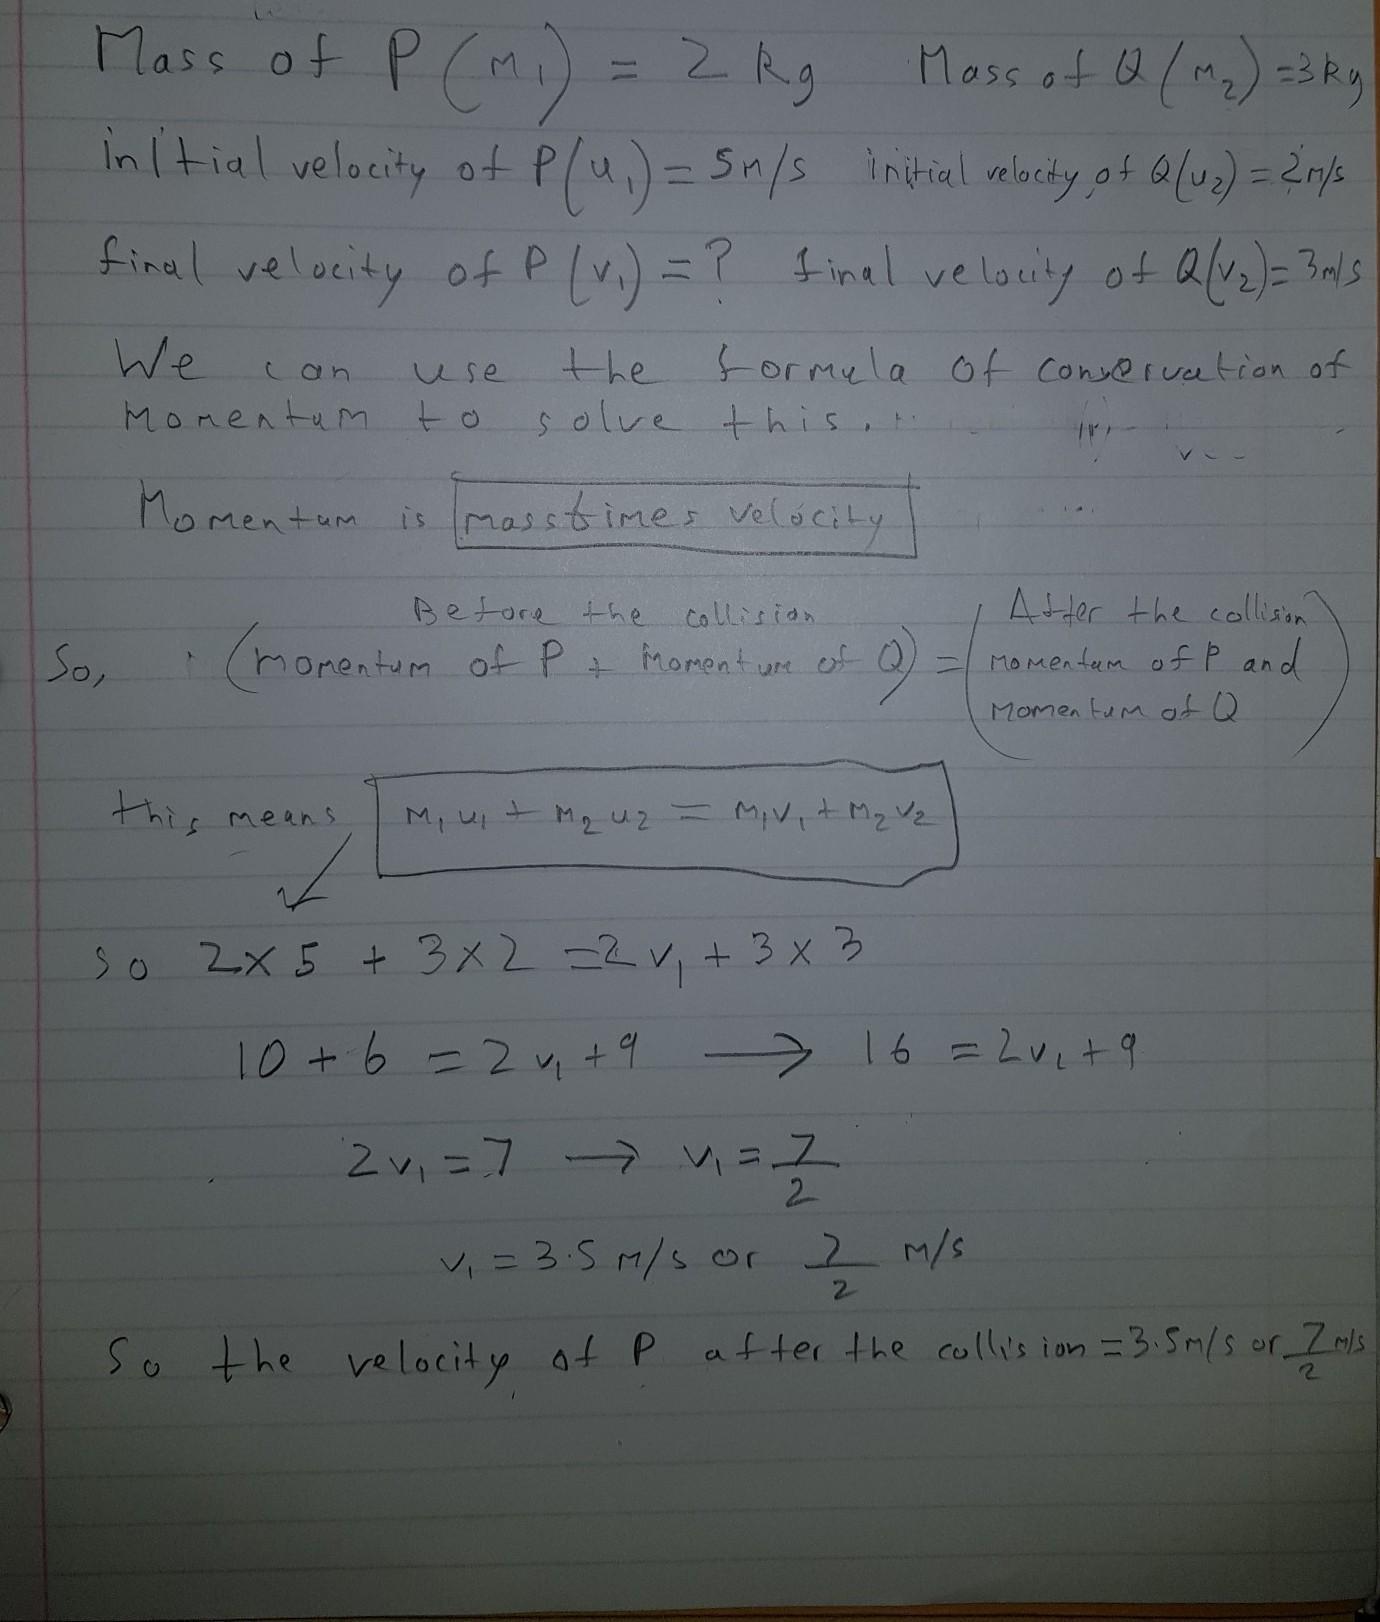 Mass of P (m₁) = 2 kg Mass of Q (m₂) = 3 kg
initial velocity of P(u₁) = 5m/s initial velocity of Q(u₂) = 2m/s
final velocity of P (v₁) = ? final velocity of Q(v₂) = 3m/s
We can use the formula of conservation of
Momentum to solve this.
Momentum is mass times velocity
Before the collision After the collision
So, (momentum of P + momentum of Q) = (momentum of P and
momentum of Q)
this means m₁u₁ + m₂u₂ = m₁v₁ + m₂v₂
so 2×5 + 3×2 = 2v₁ + 3×3
10 + 6 = 2v₁ + 9 → 16 = 2v₁ + 9
2v₁ = 7 → v₁ = 7/2
v₁ = 3.5 m/s or 7/2 m/s
So the velocity of P after the collision = 3.5m/s or 7/2 m/s